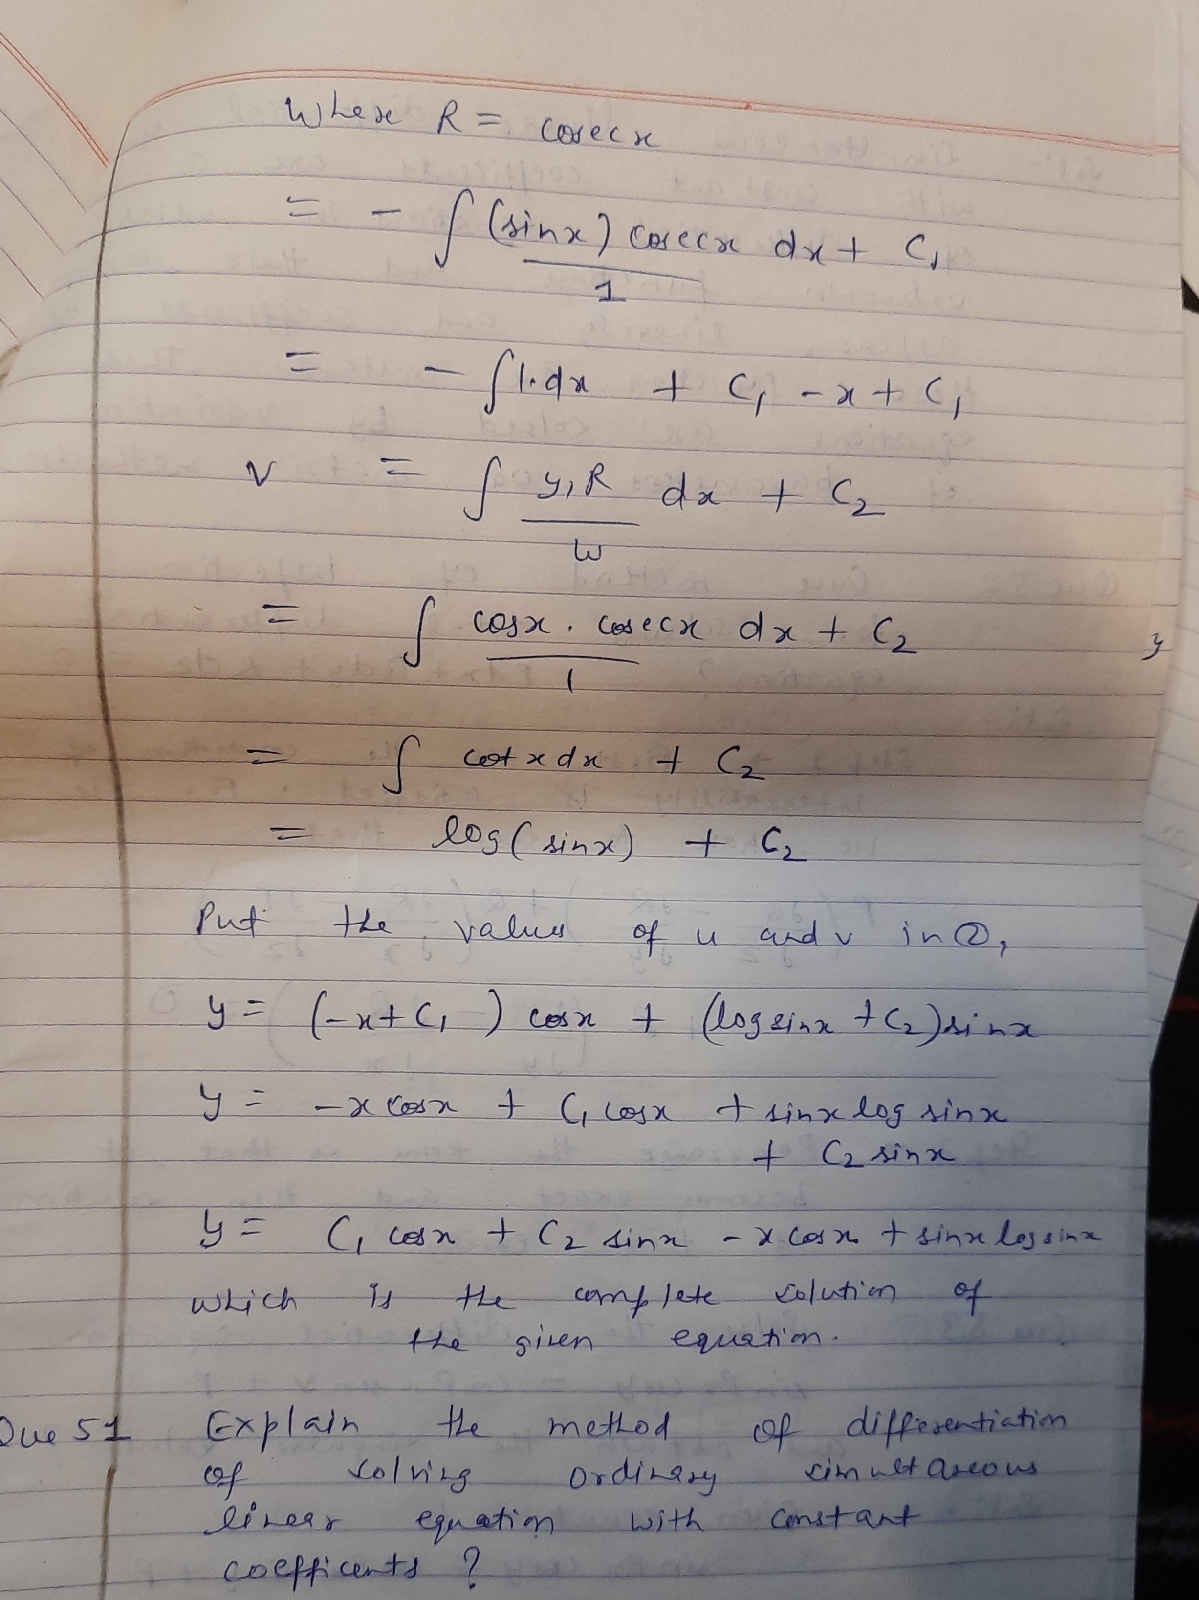 Where R = cosecx
= - ∫ (sinx) cosecx dx + C₁
1
= - ∫1.dx + C₁ -x + C₁
v = ∫ y₁R dx + C₂
W
= ∫ cosx . cosecx dx + C₂
1
= ∫ cotxdx + C₂
= log(sinx) + C₂
Put the values of u and v in ②,
y = (-x+C₁) cosx + (logsinx + C₂)sinx
y = -xcosx + C₁cosx + sinxlog sinx
+ C₂ sinx
y = C₁ cosx + C₂ sinx - xcosx + sinxlogsinx
which is the complete solution of
the given equation.
Que 51 Explain the method of differentiation
of solving ordinary simultaneous
linear equation with constant
coefficents ?